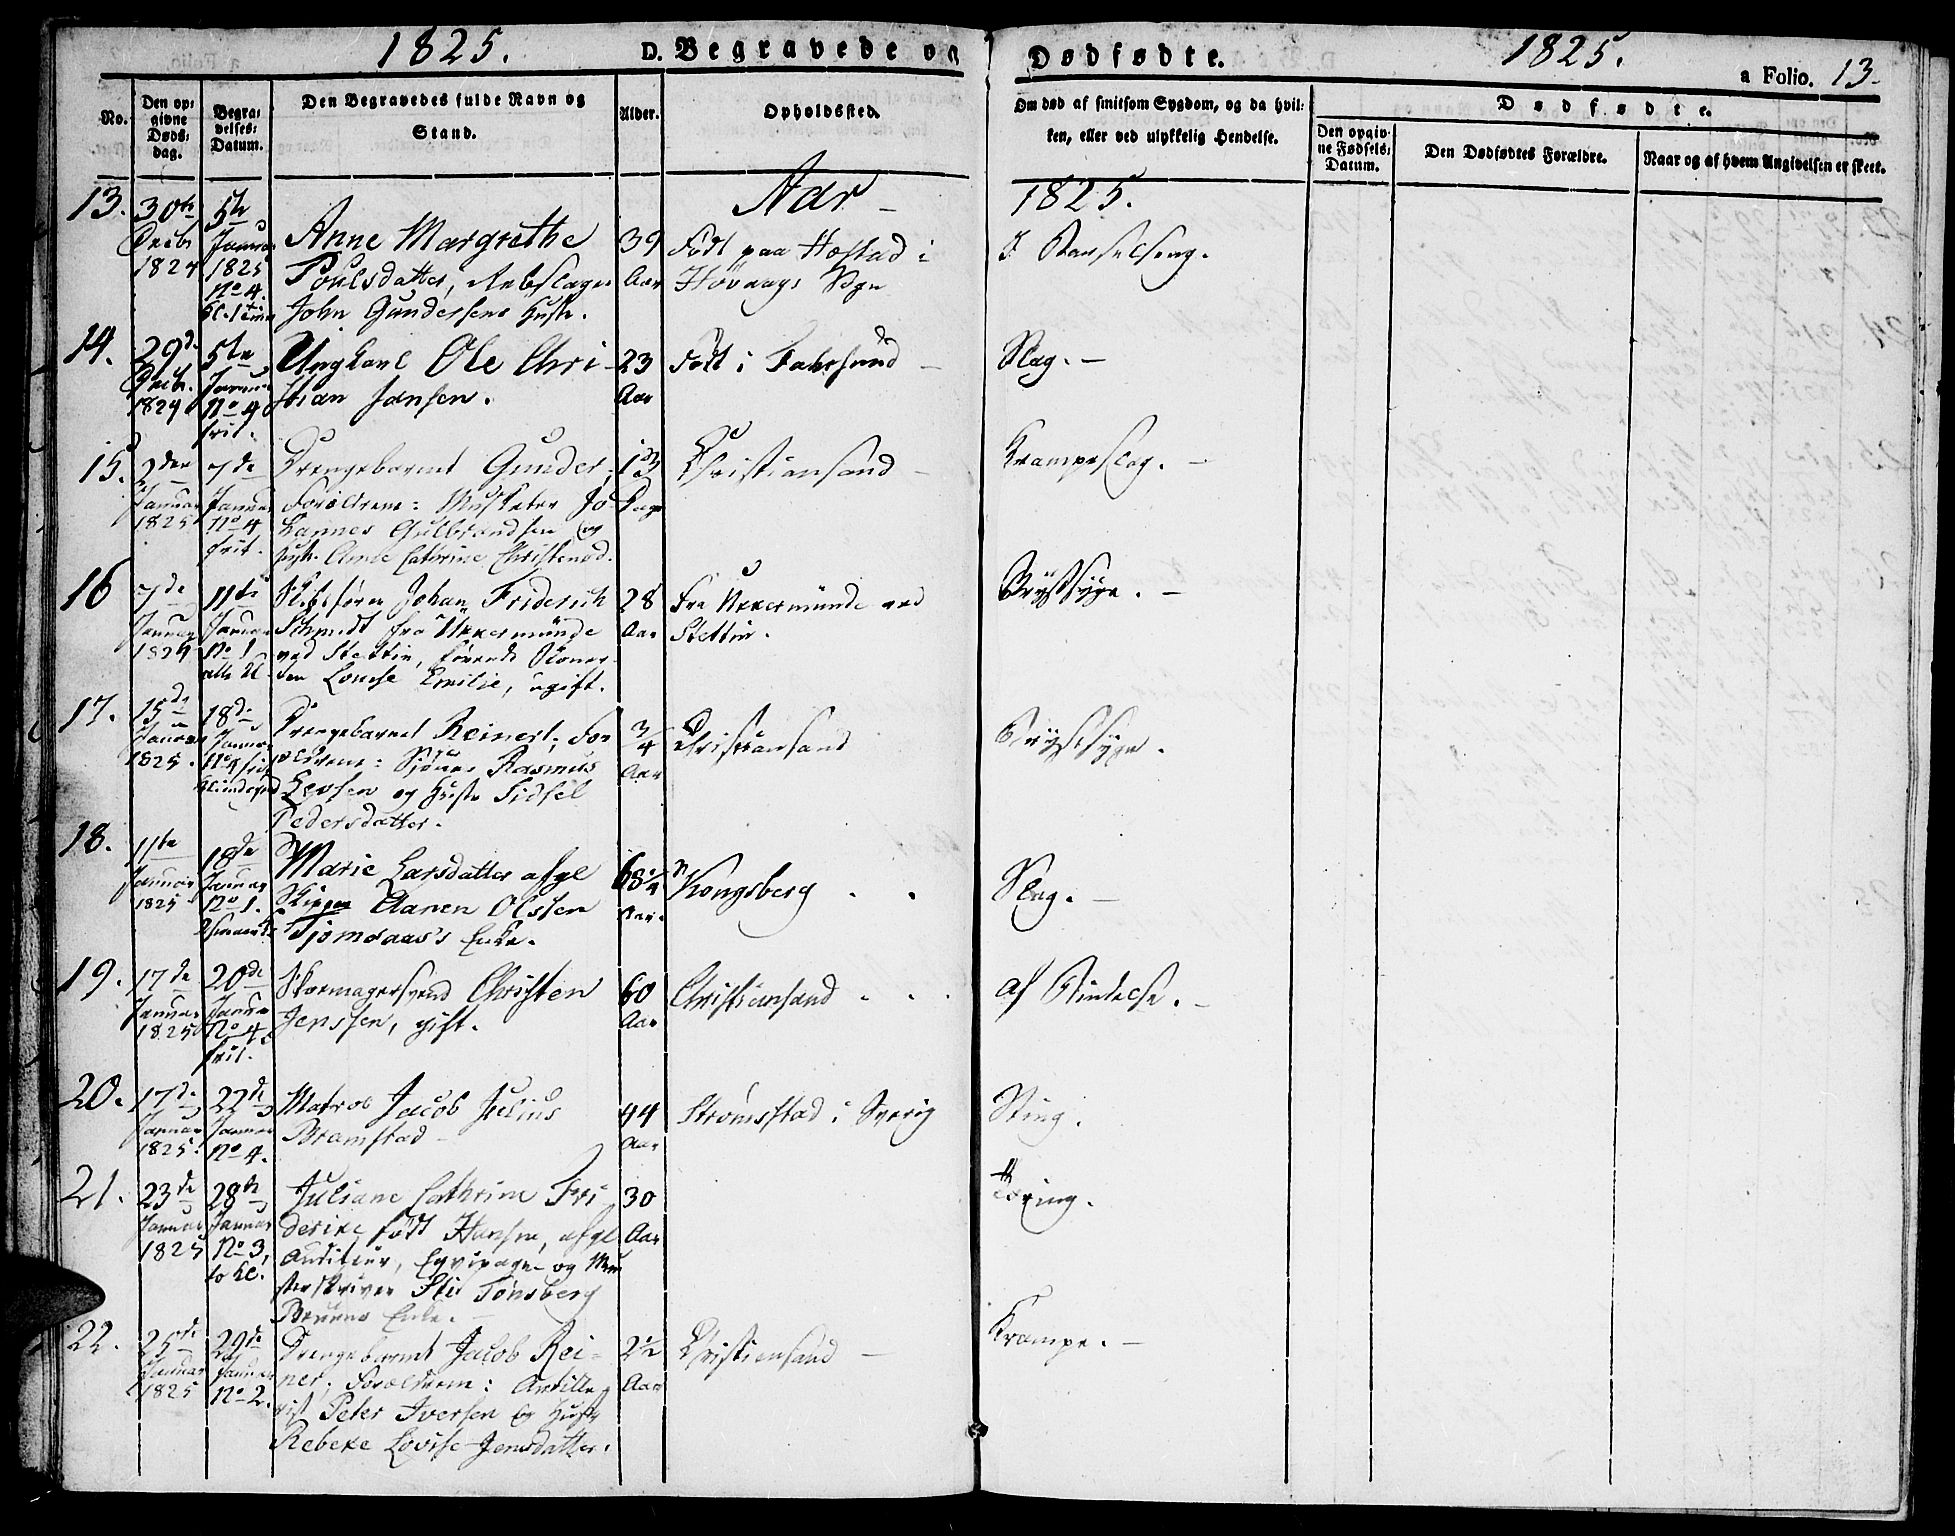 1825. D. Begravede og Dødfødte. 1825. a Folio. 13.
No. Den op=givne Døds=dag. Begra=velses=Datum. Den Begravedes fulde Navn og Stand. Alder. Opholdssted. Om død af smitsom Sygdom, og da hvil=ken, eller ved ulykkelig Hendelse. Dødfødte. Den opgiv=ne Fødsels=Datum. Den Dødfødtes Forældre. Naar og af hvem Angivelsen er skeet.
Aar 1825.
13. 30te Decbr 1824 5te Januar 1825 No 4. Kl. 1
Anne Margrethe
Poulsdatter, Rebslager
John Gundersens Hustr.
39 Aar
Født paa Hæstad i
Høvaags Sogn
I Barselseng.
14. 29de Decbr. 1824 5te Januar No 4 frit.
Ungkarl Ole Chri-
stian Jansen.
23 Aar
Født i Fahrsund
Slag. —
15. 2den Januar 1825 7de Januar No 4 frit.
Drengebarnet Gunder,
Forældrene: Musketer Jo-
hannes Gulbrandsen og
Hustr. Anne Cathrine Christensd.
13 Dage
Christiansand —
Krampeslag. —
16 7de Januar 1824 11te Januar No 1.
Skibsfører Johan Friderich
Schmidt fra Ukkermünde
ved Stettin, førende Skoner-
den Louise Emilie, ugift.
28 Aar
Fra Ukkermünde ved
Stettin.
Brystsyge. —
17. 15de Januar 1825. 18de Januar No 4 frit
Drengebarnet Reinert, For-
ældrene: Sjømd Rasmus
Larsen og Hustr Sidsel
Pedersdatter.
3/4 Aar
Christiansand
Brystsyge.
18. 11te Januar 1825 18de Januar No 1.
Marie Larsdatter afgl
Skipper Aanen Olsen
Tjomsaas's Enke.
68 1/4 Aar.
Kongsberg
Slag. —
19. 17de Januar 1825 20de Januar No 4. frit.
Skomagersvend Christen
Jenssen, gift.
60 Aar
Christiansand
af Bindelse. —
20. 17de Januar 1825. 22de Januar No 4.
Matros Jacob Julius
Bramstad —
44 Aar
Strømsstad i Sverig
Sting.
21. 23de Januar 1825 28de Januar No 3, 10 Kl.
Juliane Cathrine Fri-
derike født Hansen, afgl
Auditeur, Eqvipage- og Mun-
sterskriver Stie Tønsberg
Bruuns Enke. —
30 Aar
Tæring.
22. 25de Januar 1825 29de Januar No 2.
Drengebarnet Jacob Rei-
ner, Forældrene: Artille-
rist Peter Iversen og Hustr
Rebeke Lovise Jensdatter.
2 1/2 Aar
Christiansand —
Krampe. —